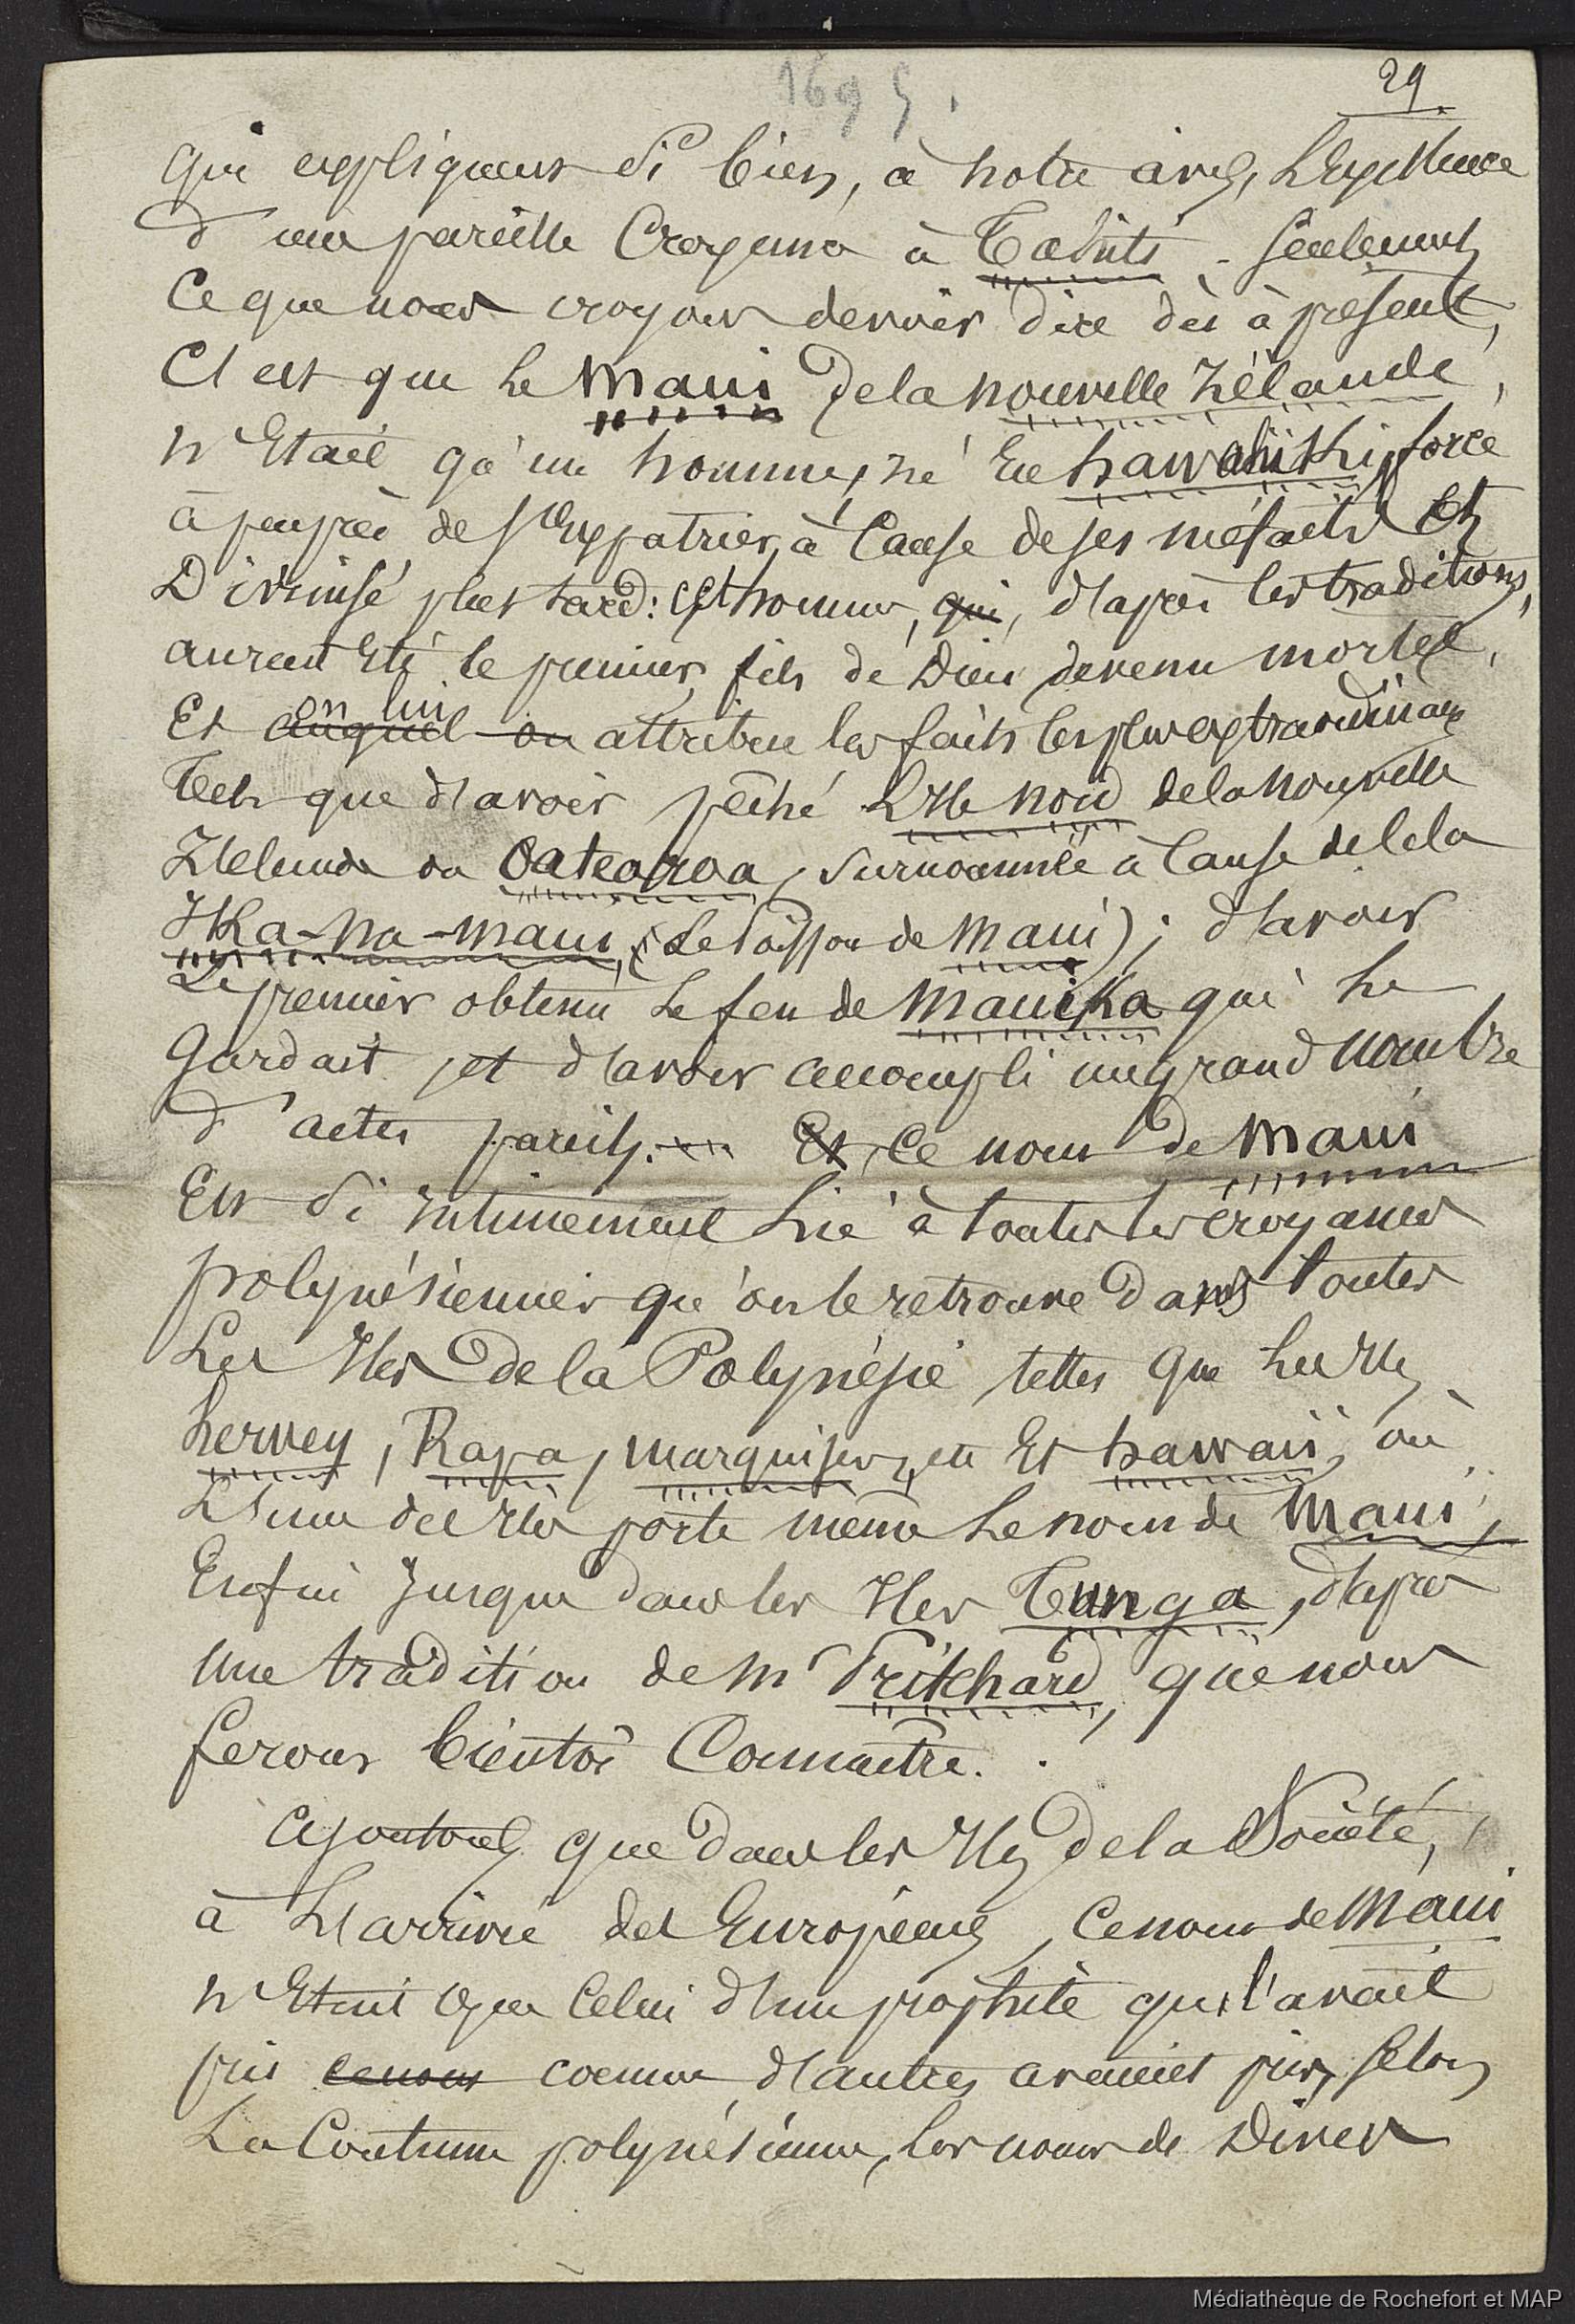 1695.
29
qui expliquent si bien, à notre avis, L'Existence
d'une pareille Croyance à Tahiti. Seulement
Ce que nous croyons devoir dire dès à présent,
C'est que le Maui de la Nouvelle Zélande,
n'Etait qu'un homme, né En hawahiki, forcé
à peu près de s'Expatrier, à Cause de ses méfaits Et
Divinisé plus tard: Cet homme, qui, d'après les traditions,
aurait Eté le premier fils de Dieu devenu mortel,
on lui
Et auquel on attribue les faits les plus extraordinaires
Tels que d'avoir pêché L'Ile Nord de la Nouvelle
Zélande ou Oateoroa, surnommée à Cause de Cela
IKa-Na-Maui, (Le Poisson de Maui); d'avoir
Le premier obtenu Le feu de MauiKa qui Le
Gardait, et d'avoir accompli un grand Nombre
d'actes pareils. Et, Ce nom de Maui
Est si intimement Lié à toutes les croyances
polynésiennes qu'on le retrouve dans toutes
Les Iles de la Polynésie, telles que Les Iles
hervey, Rapa, Marquises, et hawaii, où
L'une des Iles porte même Le nom de Maui,
Enfin Jusque dans les Iles Tunga, d'après
une tradition de Mr Pritchard, que nous
ferons bientôt Connaître.
Ajoutons que dans les Iles de la Société,
à L'arrivée des Européens, Ce nom de Maui
n'Etait que Celui d'un prophète qui l'avait
pris ce nom comme d'autres avaient pris, selon
La Coutume polynésienne, les noms de Divers